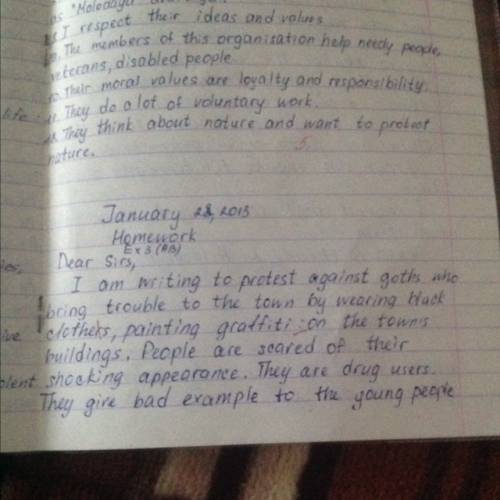 I respect their ideas and values
The members of this organisation help needy people,
veterans, disabled people
Their moral values are loyalty and responsibility
life
They do a lot of voluntary work.
They think about nature and want to protect
nature.
5
January 28, 2013
Homework
Ex 3 (AB)
Dear Sirs,
I am writing to protest against goths who
bring trouble to the town by wearing black
clotheks, painting graffiti on the town's
buildings. People are scared of their
shocking appearance. They are drug users.
They give bad example to the young people